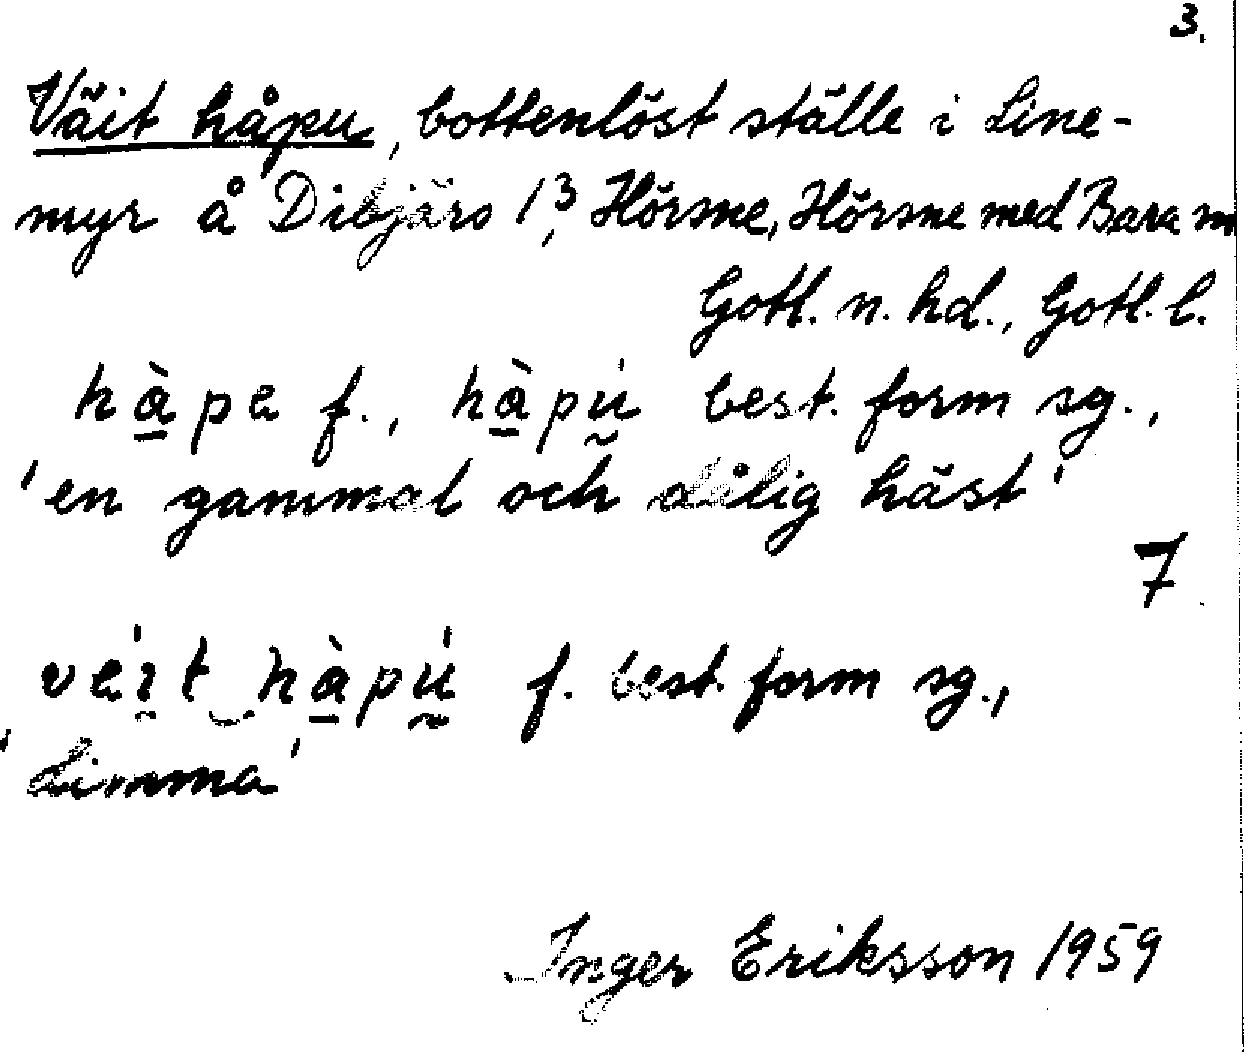 3.
Väit håpu, bottenlöst ställe i Line-
myr å Dibjärs 1³, Hörsne, Hörsne med Bara sn
Gotl. n. hd., Gotl. l.
hàpa f., hàpú best. form sg.,
'en gammal och dålig häst'
7
véıt hàpú f. best. form sg.,
'Limma'
Inger Eriksson 1959